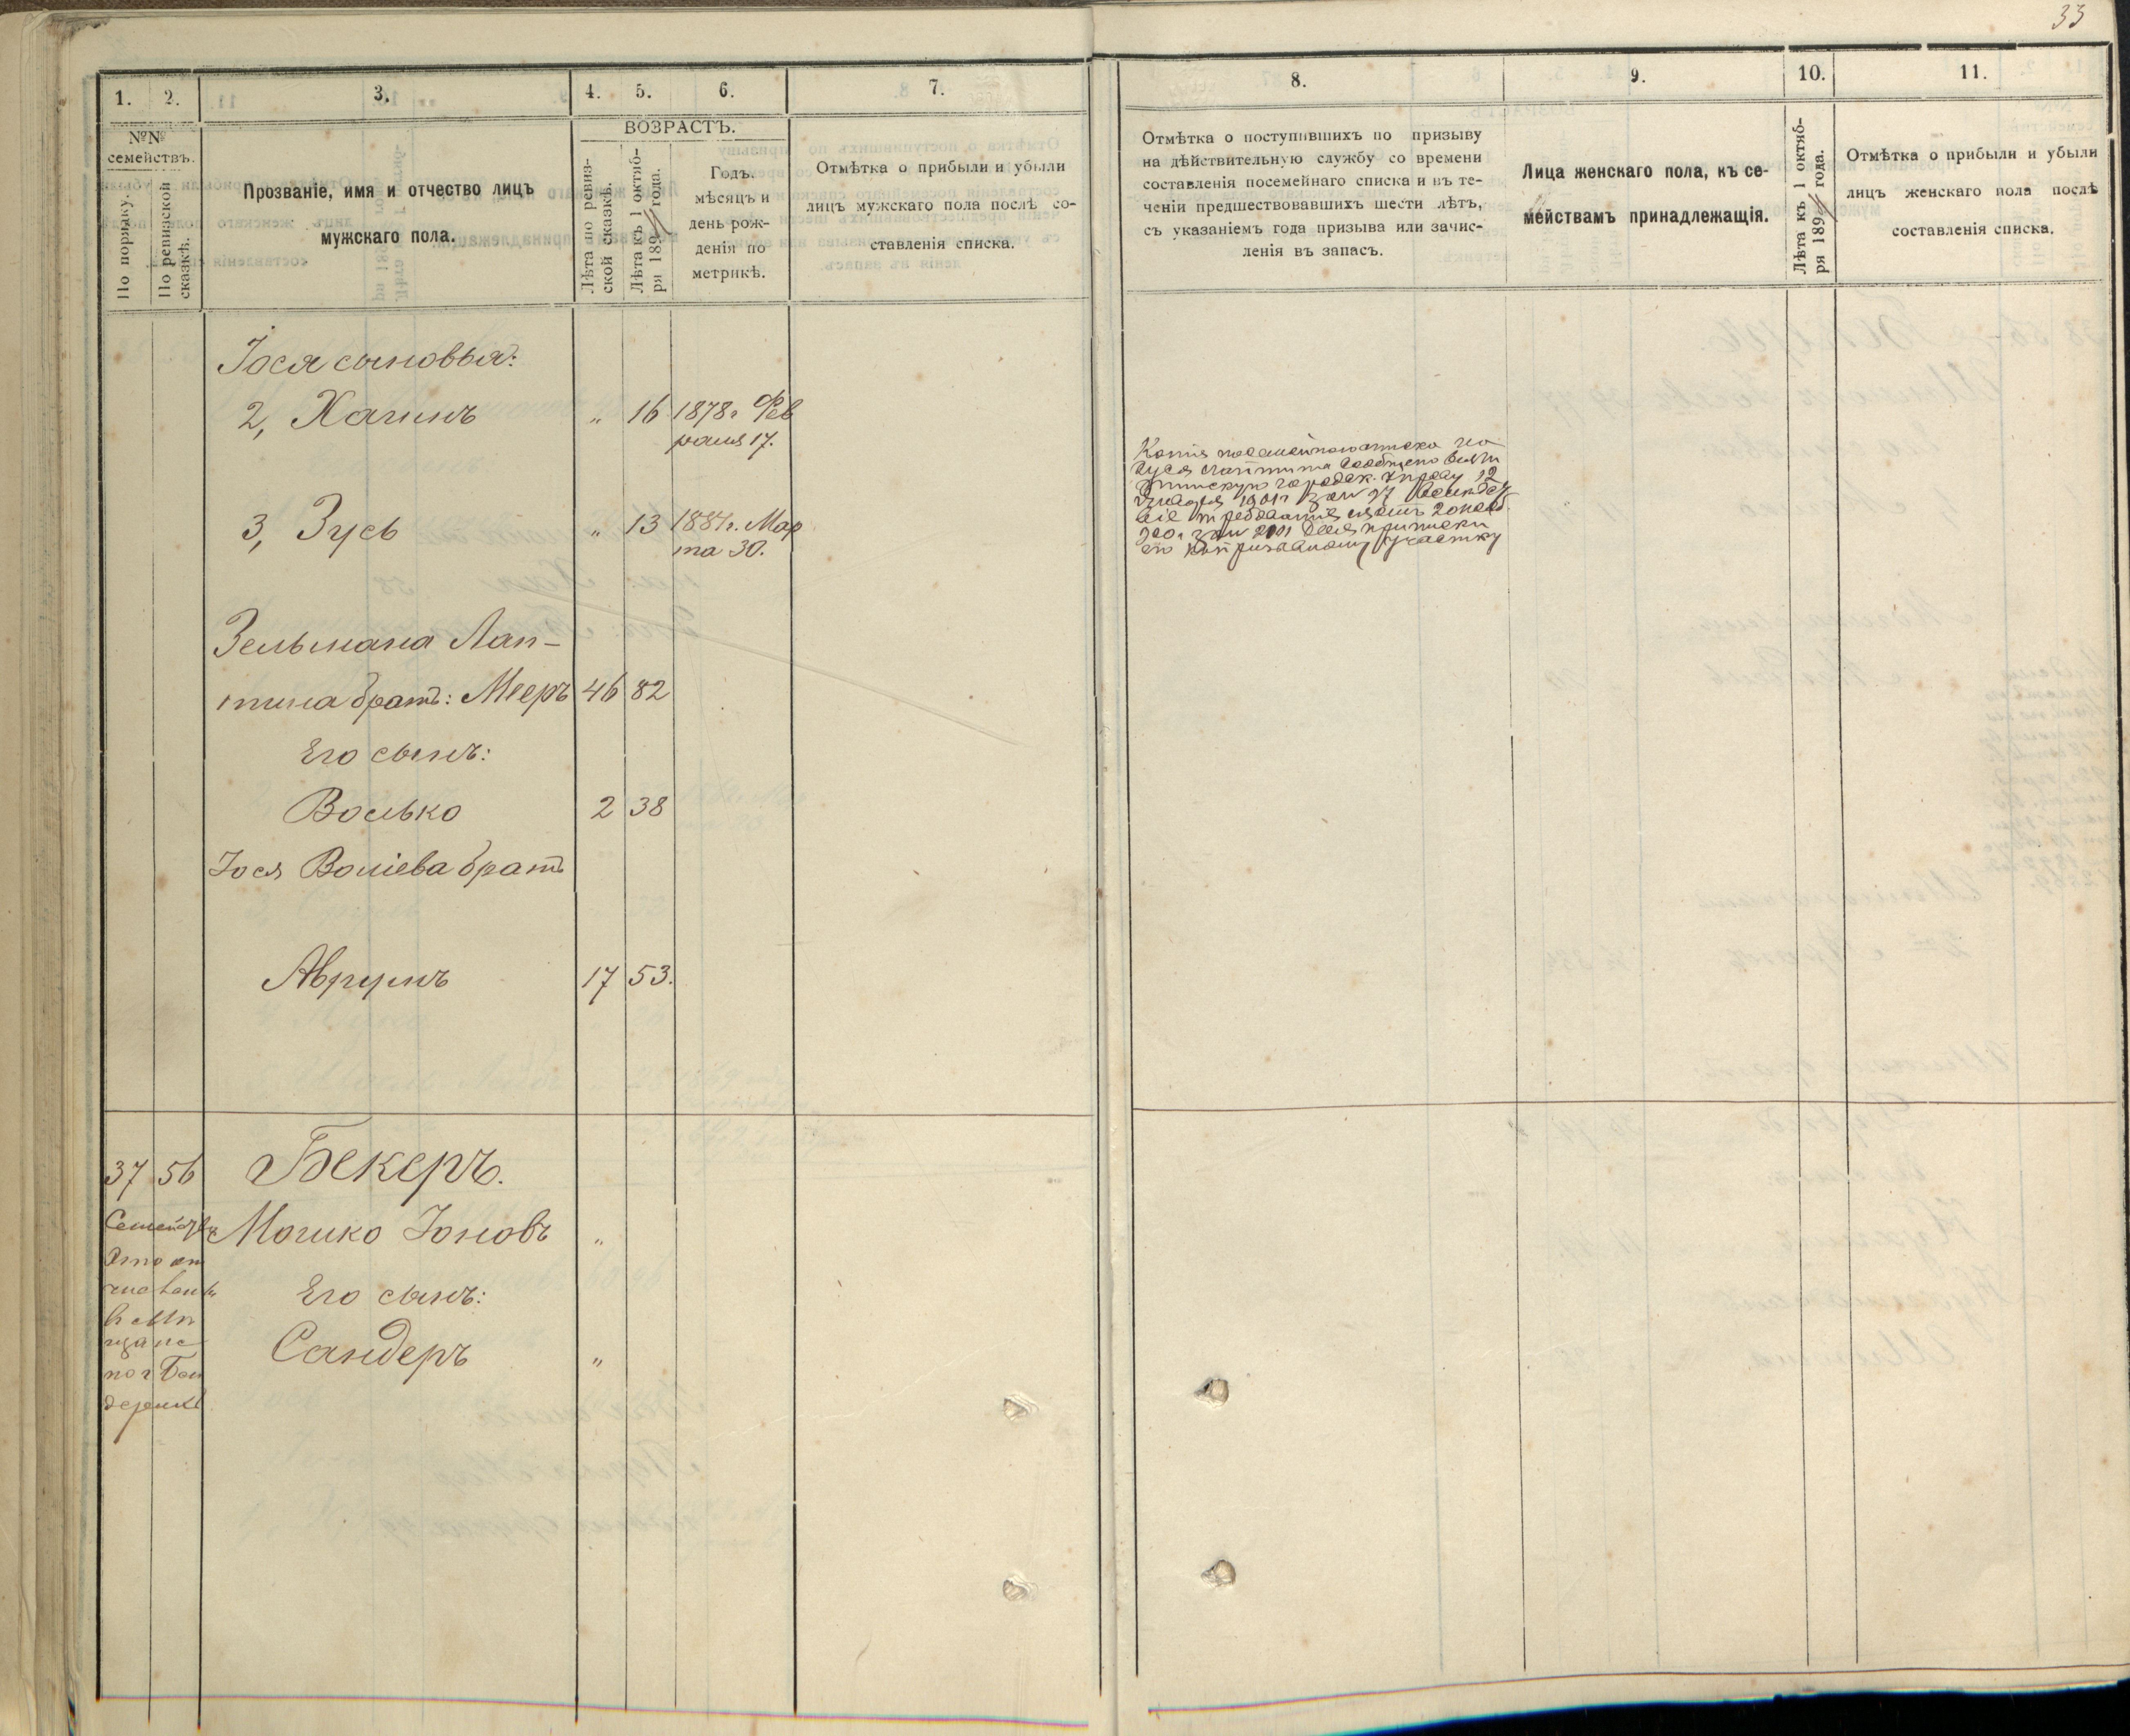 33
1. 2. 3. 4. 5. 6. 7.
№№ семействъ.
По порядку.
По ревизской сказкѣ.
Прозваніе, имя и отчество лицъ
мужскаго пола.
ВОЗРАСТЪ.
Лѣта по ревиз-
ской сказкѣ.
Лѣта къ 1 октяб-
ря 189 года.
Годъ,
мѣсяцъ и
день рож-
денія по
метрикѣ.
Отмѣтка о прибыли и убыли
лицъ мужскаго пола послѣ со-
ставленія списка.
8. 9. 10. 11.
Отмѣтка о поступившихъ по призыву
на дѣйствительную службу со времени
составленія посемейнаго списка и въ те-
ченіи предшествовавшихъ шести лѣтъ,
съ указаніемъ года призыва или зачис-
ленія въ запасъ.
Лица женскаго пола, къ се-
мействамъ принадлежащія.
Лѣта къ 1 октяб-
ря 189 года.
Отмѣтка о прибыли и убыли
лицъ женскаго пола послѣ
составленія списка.
Іося сыновья:
2, Хаимъ " 16 1878 г. Фев
раля 17.
3, Зусь " 13 1881 г. Мар
та 30.
Копія посемейнаго списка на
Зуся
городск. Управу 12
1901 г. за №
20
за №
участку
Зельмана Лап-
тина братъ: Мееръ 46 82
Его сынъ:
Волько 2 38
Іося братъ
Аврумъ 17 53.
37 56 Бекеръ.
Мошко Іоновъ "
Его сынъ:
Сандеръ "
Семейство
это